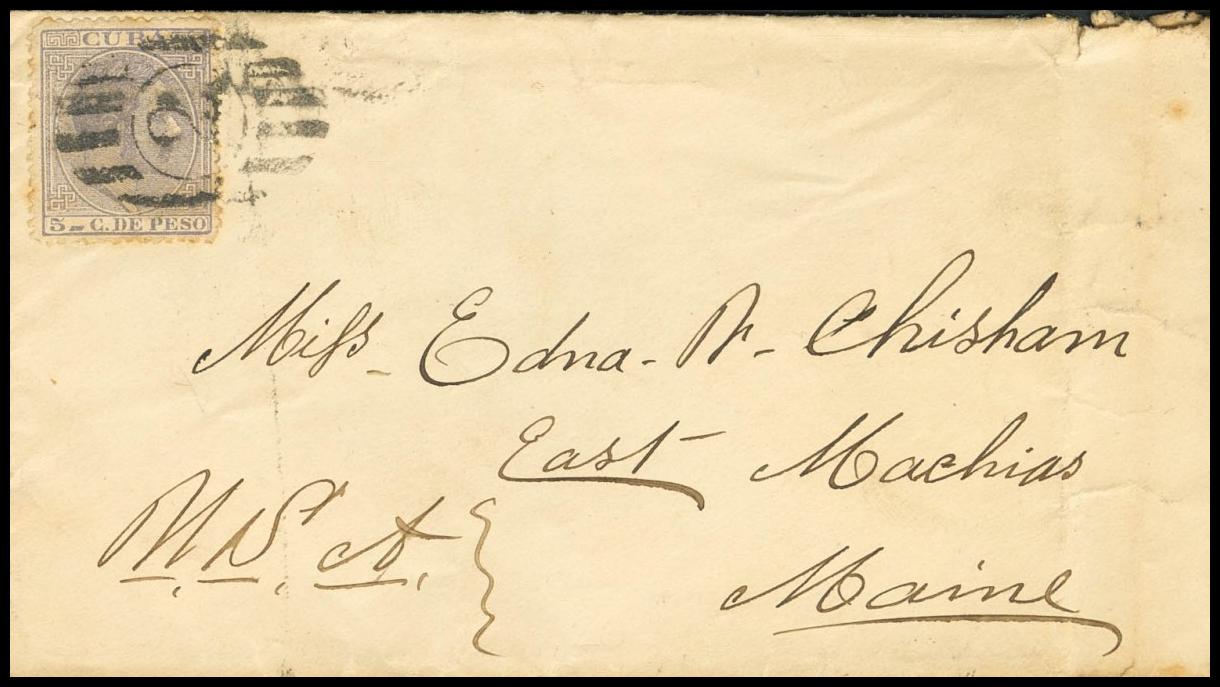 CUBA
5 C. DE PESO
Miss Edna. W. Chisham
East Machias
U.S.A.
Maine